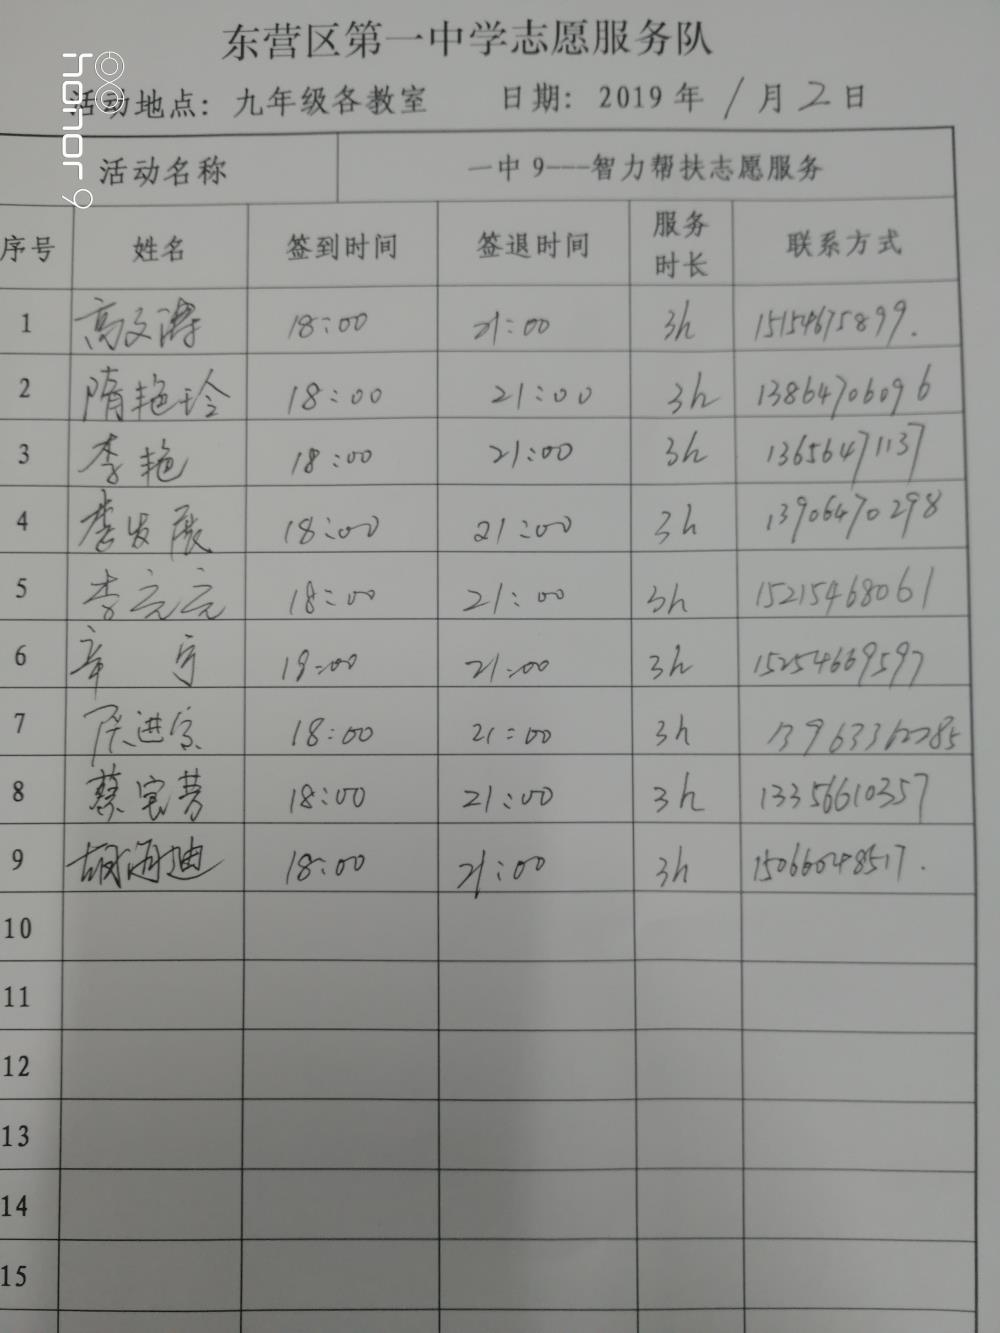 东营区第一中学志愿服务队
honor 9
活动地点：九年级各教室 日期：2019 年 1 月 2 日
活动名称 一中 9---智力帮扶志愿服务
序号 姓名 签到时间 签退时间 服务时长 联系方式
1 高文涛 18:00 21:00 3h 15154675899.
2 隋艳玲 18:00 21:00 3h 13864706096
3 李艳 18:00 21:00 3h 13656471137
4 李发展 18:00 21:00 3h 13906470298
5 李元元 18:00 21:00 3h 15215468061
6 辛宁 18:00 21:00 3h 15254669597
7 进 18:00 21:00 3h
8 蔡宝芳 18:00 21:00 3h 13356610357
9 胡海迪 18:00 21:00 3h 15066048517.
10
11
12
13
14
15